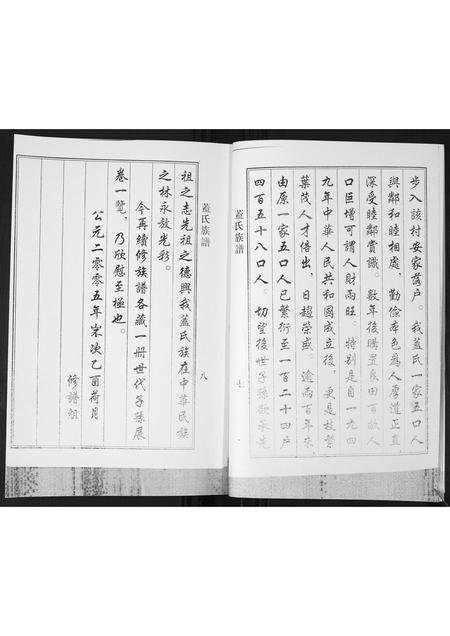 步入該村安家落户。我蓋氏一家五口人
與鄰和睦相處，勤儉本色爲人厚道正直
深受睦鄰賞識。數年後購置良田百畝人
口巨增可謂人財兩旺。特别是自一九四
九年中華人民共和國成立後，更是枝繁
葉茂人才倍出，日趨榮盛。逾兩百年來
由原一家五口人已繁衍至一百二十四户
四百五十八口人。切望後世子孫欲承先
蓋氏族譜
七
蓋氏族譜
八
祖之志先祖之德興我蓋氏族在中華民族
之林永放光彩。
今再續修族譜各藏一册世代子孫展
卷一覽，乃欣慰至極也。
公元二零零五年宋次乙酉荷月
修譜組